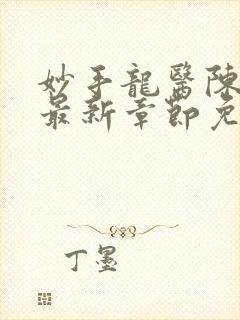 妙手龍醫陳
最新章節免
丁墨